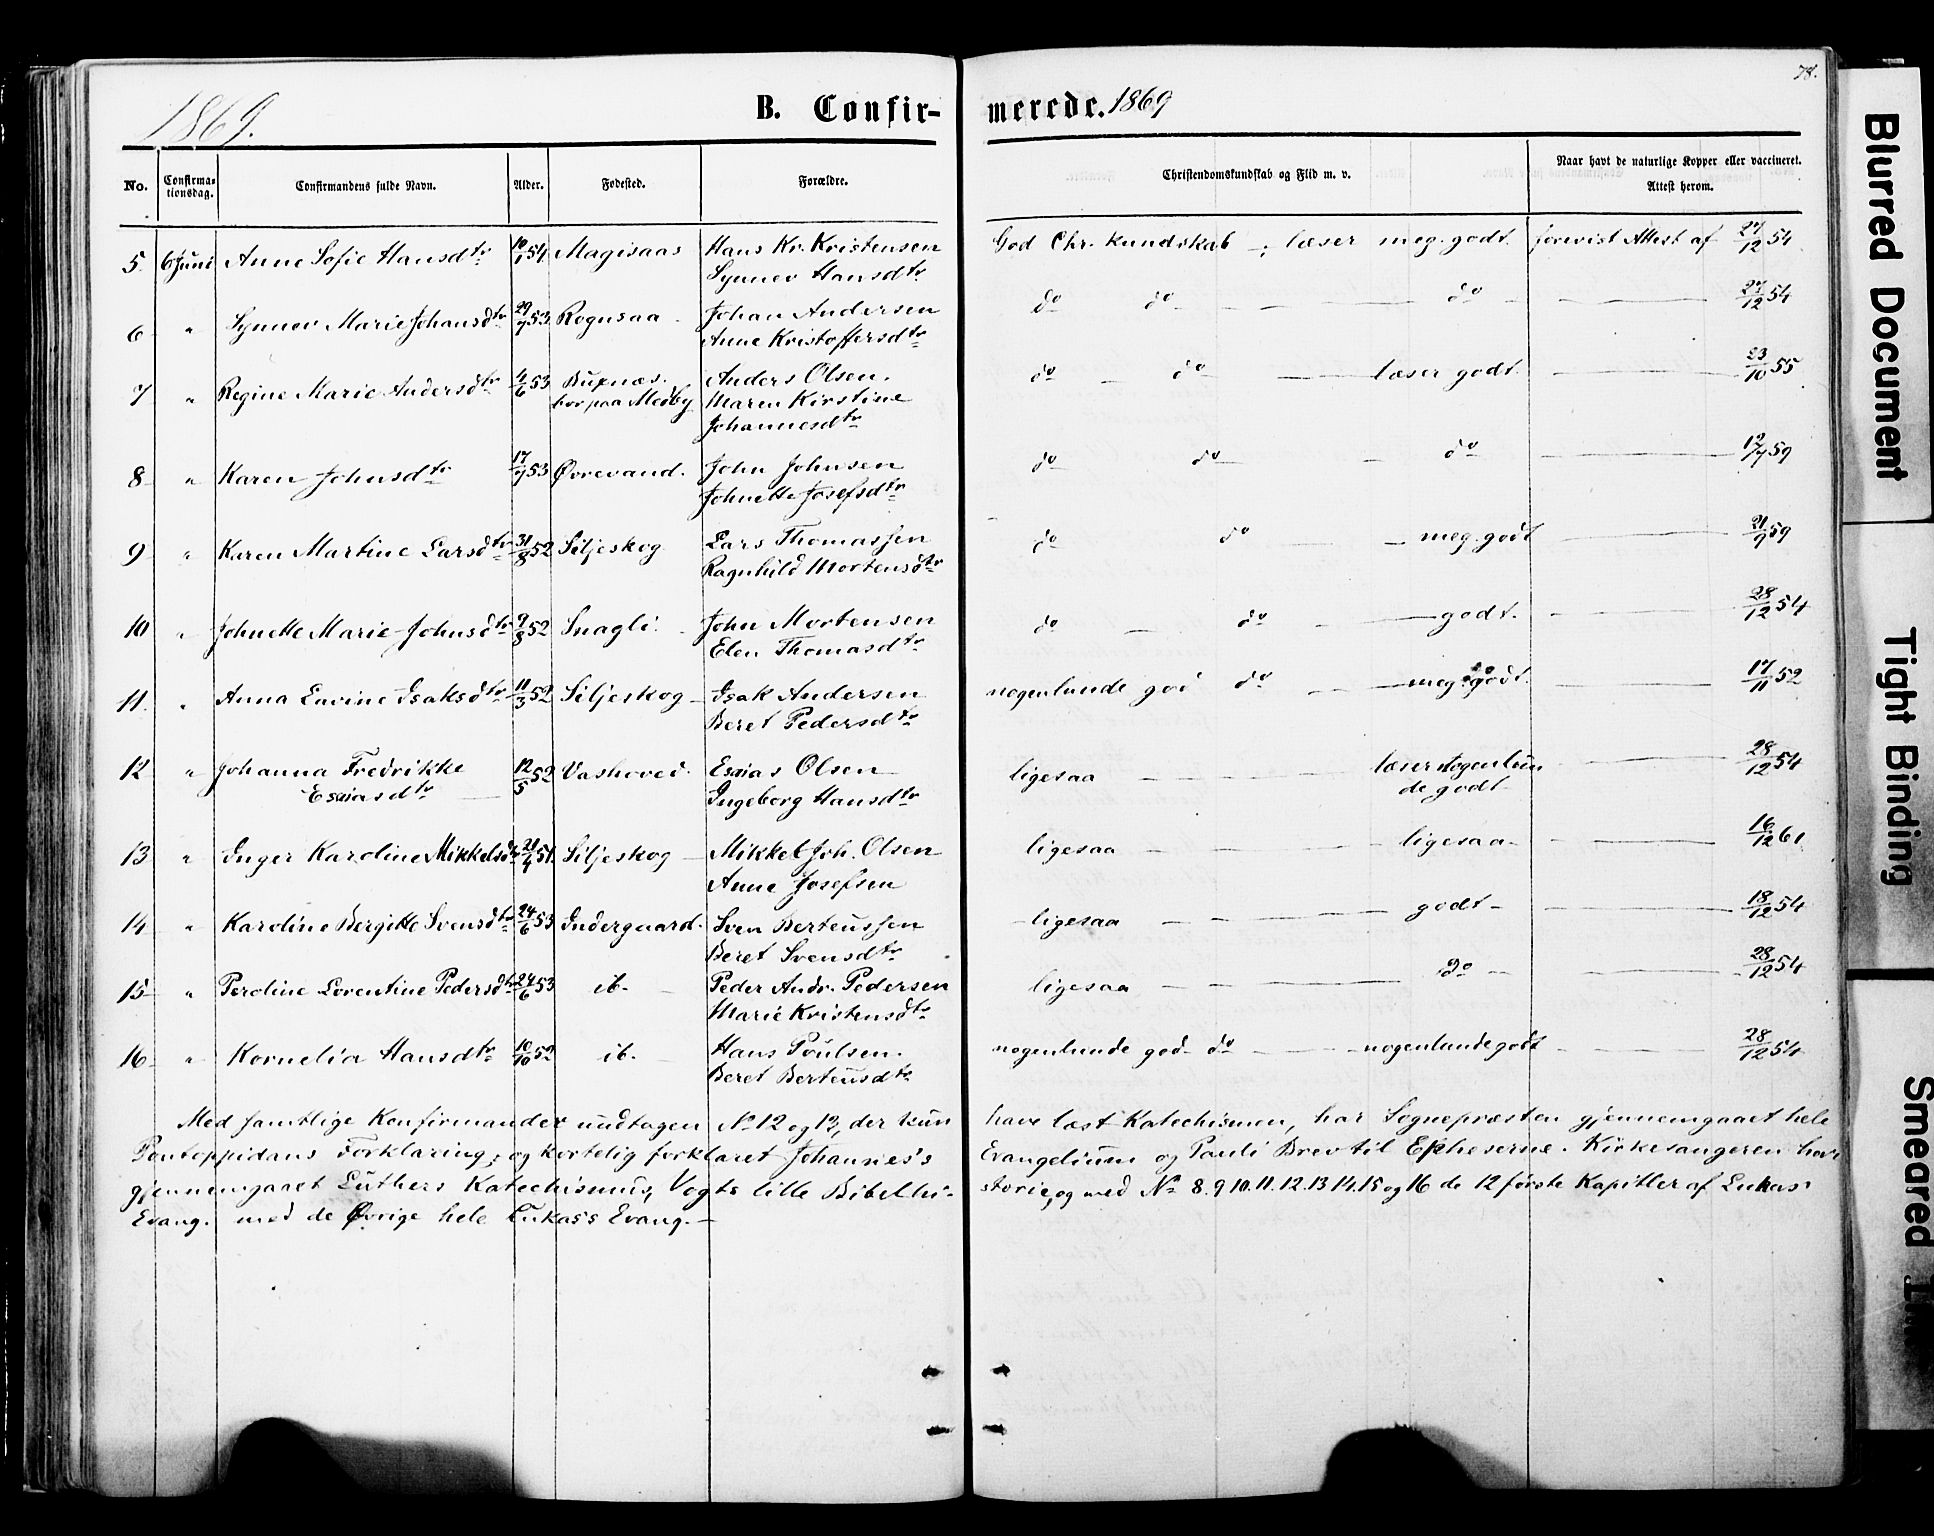 78.
1869. B. Confir- merede. 1869
No. Confirma-tionsdag. Confirmandens fulde Navn. Alder. Fødested. Forældre. Christendomskundskab og Flid m. v. Naar havt de naturlige Kopper eller vaccineret. Attest herom.
5. 6 Juni Anne Sofie Hansdtr 10/1 54 Magisaas Hans Kr. Kristensen God Chr. kundskab -; læser meg. godt. forevist Attest af 27/12 54
Synnev Hansdtr
6 " Synnev Marie Johansdtr 29/7 53 Rognsaa Johan Andersen do do do 27/12 54
Anne Kristoffersdtr
7 " Regine Marie Andersdtr 4/6 53 Buxnæs. Anders Olsen. do do læser godt. 23/10 55
bor paa Medby Maren Kirstine
Johannesdtr
8 " Karen Johnsdtr 17/7 53 Øvrevand. John Johnsen do do do 12/7 59
Johnette Josefsdtr
9 " Karen Martine Larsdtr 31/8 52 Siljeskog Lars Thomassen do do meg. godt 21/9 59
Ragnhild Mortensdtr
10 " Johnette Marie Johnsdtr 9/8 52 Snagli. John Mortensen do do godt. 28/12 54
Elen Thomasdtr
11. " Anna Lavine Isaksdtr 11/3 52 Siljeskog Isak Andersen nogenlunde god do meg. godt. 17/11 52
Beret Pedersdtr
12 " Johanna Fredrikke 12/5 52 Vashoved. Esaias Olsen ligesaa læser nogenlun 28/12 54
Esaiasdtr Ingeborg Hansdtr de godt
13 " Inger Karoline Mikkelsdtr 21/4 51. Siljeskog Mikkel Joh. Olsen ligesaa ligesaa 16/12 61
Anne Josefsen
14 " Karoline Bergitte Svensdtr 24/6 53 Indergaard. Sven Berteussen ligesaa godt 18/12 54
Beret Svensdtr
15 " Peroline Lorentine Pedersdtr 24/6 53 ib. Peder Andr. Pedersen ligesaa do 28/12 54
Marie Kristensdtr
16 " Kornelia Hansdtr 10/10 52 ib. Hans Poulsen. nogenlunde god do nogenlunde godt 28/12 54
Beret Berteusdtr
Med samtlige Konfirmander undtagen No 12 og 13, der kun have læst Katechismen, har Sognepræsten gjennemgaaet hele
Pontoppidans Forklaring, og kortelig forklaret Johannes's Evangelium og Pauli Brev til Epheserne. Kirkesangeren har
gjennemgaaet Luthers Katechismus, Vogts lille Bibelhi- storie, og med No 8. 9 10. 11. 12. 13 14. 15 og 16 de 12 første Kapitler af Lukas'
Evang. med de Øvrige hele Lukas's Evang.
Blurred Document
Tight Binding
Smeared